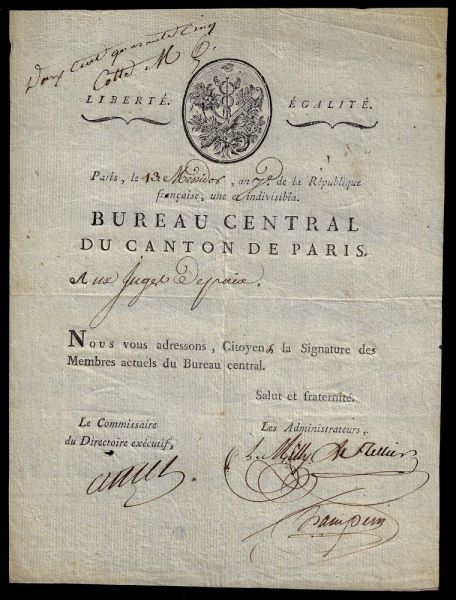 Deux Cent quarante Cinq
Cotte M
LIBERTÉ. ÉGALITÉ.
Paris, le 13 Messidor, an 7e de la République
française, une & indivisible.
BUREAU CENTRAL
DU CANTON DE PARIS.
Aux Juges Depaix.
Nous vous adressons, Citoyens, la Signature des
Membres actuels du Bureau central.
Salut et fraternité.
Le Commissaire
du Directoire exécutif,
Les Administrateurs,
L. Milly Le Tellier
Champein